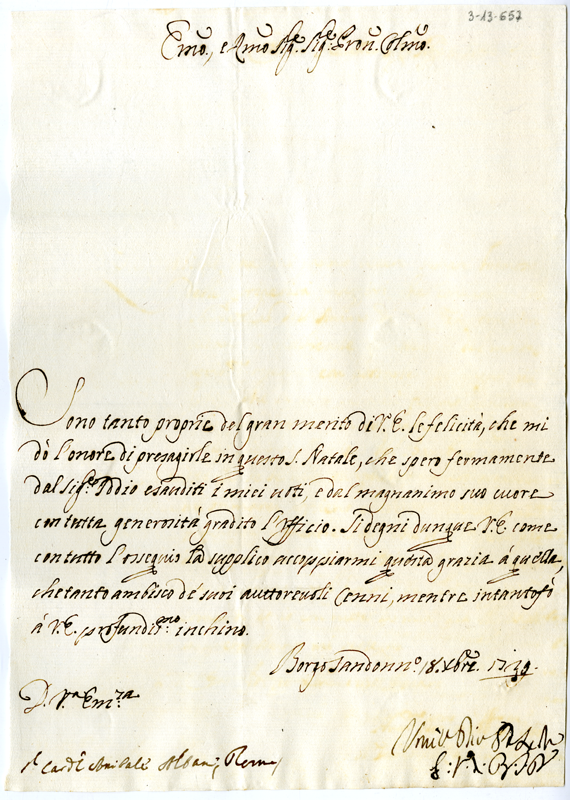 3-13-657
Emo., e Rmo Sig.e Sig.e Pron. Colmo.
Sono tanto proprie del gran merito di V.E. le felicità, che mi
dò l'onore di presagirle in questo S. Natale, che spero fermamente
dal Sig.e Iddio esauditi i miei voti, e dal magnanimo suo cuore
con tutta generosità gradito l'Officio. Si degni dunque V.E. come
con tutto l'ossequio la supplico accoppiarmi questa grazia à quella,
che tanto ambisco de' suoi auttorevoli Cenni, mentre intanto fò
à V.E. profundis.mo inchino.
Borgo Sandonno. 18. Xbre. 1739.
D. V.ra Em.za
S.r Card.l Anibale Albani, Roma,